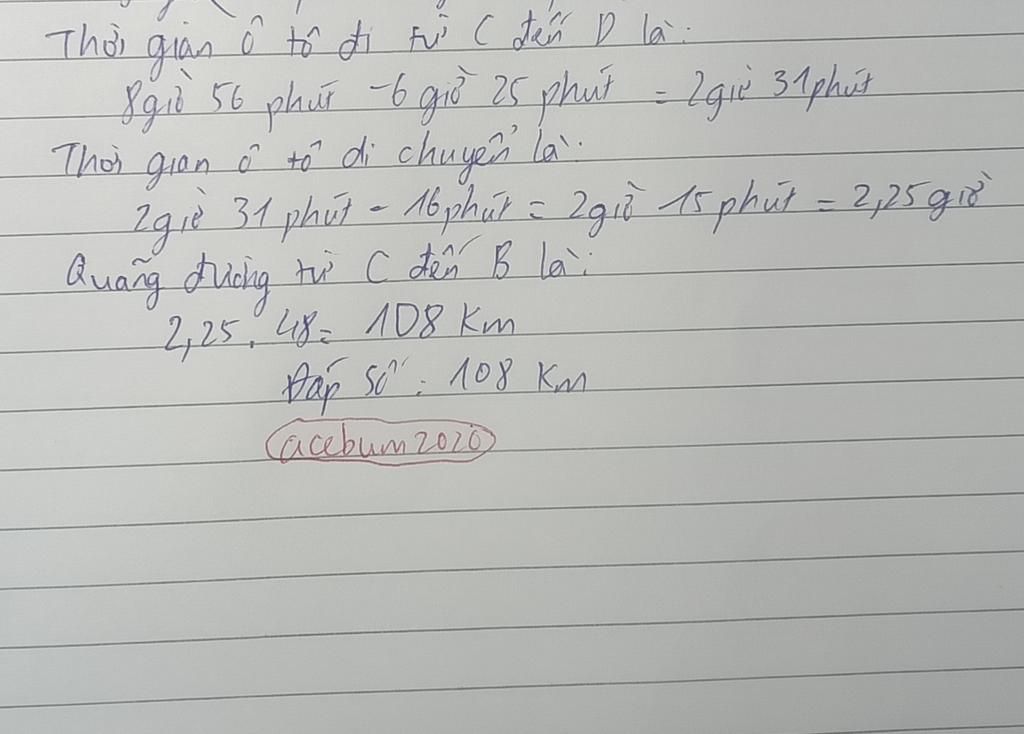 Thời gian ô tô đi từ C đến D là:
8giờ 56 phút - 6 giờ 25 phút = 2giờ 31phút
Thời gian ô tô di chuyển là:
2giờ 31 phút - 16phút = 2giờ 15 phút = 2,25 giờ
Quãng đường từ C đến B là:
2,25 . 48 = 108 Km
Đáp số : 108 Km
acebum2020